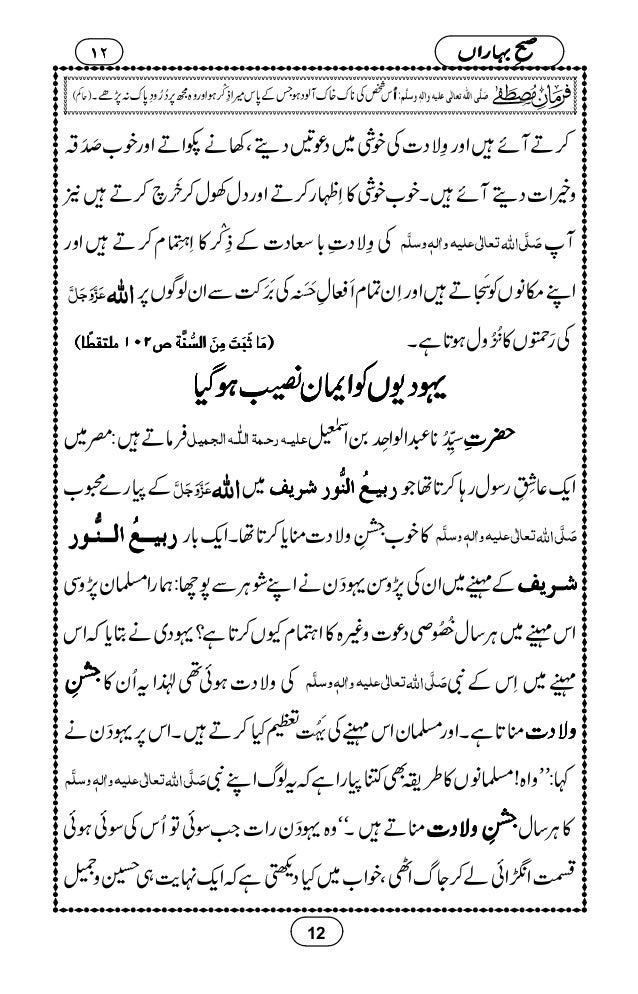 صبحِ بہاراں
۱۲
فرمانِ مصطَفٰے صلی اللہ تعالٰی علیہ واٰلہٖ وسلّم: اُس شخص کی ناک خاک آلود ہو جس کے پاس میرا ذِکر ہو اور وہ مجھ پر دُرُود پاک نہ پڑھے۔ (حاکم)
کرتے آئے ہیں اور وِلادت کی خوشی میں دعوتیں دیتے ، کھانے پکواتے اور خوب صَدَقہ
وخیرات دیتے آئے ہیں۔ خوب خوشی کا اِظہار کرتے اور دل کھول کر خَرچ کرتے ہیں نیز
آپ صَلَّی اللہ تعالٰی علیہ واٰلہٖ وسلَّم کی وِلادتِ با سعادت کے ذِکْر کا اِہتِمام کرتے ہیں اور
اپنے مکانوں کو سَجاتے ہیں اور اِن تمام اَفعالِ حَسَنہ کی بَرَکت سے ان لوگوں پر اللہ عَزَّوَجَلَّ
کی رَحمتوں کا نُزُول ہوتا ہے۔ (مَا ثَبَتَ مِنَ السُّنَّۃ ص۱۰۲ ملتقطًا)
یہودیوں کو ایمان نصیب ہو گیا
حضرتِ سیِّدُنا عبدالواحِد بن اسمٰعیل علیہ رحمۃ اللّٰہ الجمیل فرماتے ہیں: مصر میں
ایک عاشقِ رسول رہا کرتا تھا جو ربیعُ النُّور شریف میں اللہ عَزَّوَجَلَّ کے پیارے محبوب
صَلَّی اللہ تعالٰی علیہ واٰلہٖ وسلَّم کا خوب جشنِ ولادت منایا کرتا تھا۔ ایک بار ربیعُ النُّور
شریف کے مہینے میں ان کی پڑوسن یہودَن نے اپنے شوہر سے پوچھا: ہمارا مسلمان پڑوسی
اس مہینے میں ہر سال خُصُوصی دعوت وغیرہ کا اہتمام کیوں کرتا ہے؟ یہودی نے بتایا کہ اس
مہینے میں اِس کے نبی صَلَّی اللہ تعالٰی علیہ واٰلہٖ وسلَّم کی ولادت ہوئی تھی لہٰذا یہ اُن کا جشنِ
ولادت مناتا ہے۔ اور مسلمان اس مہینے کی بَہُت تعظیم کیا کرتے ہیں۔ اس پر یہودَن نے
کہا: ’’واہ! مسلمانوں کا طریقہ بھی کتنا پیارا ہے کہ یہ لوگ اپنے نبی صَلَّی اللہ تعالٰی علیہ واٰلہٖ وسلَّم
کا ہر سال جشنِ ولادت مناتے ہیں ۔‘‘ وہ یہودَن رات جب سوئی تو اُس کی سوئی ہوئی
قسمت انگڑائی لے کر جاگ اٹھی ، خواب میں کیا دیکھتی ہے کہ ایک نہایت ہی حسین وجمیل
12